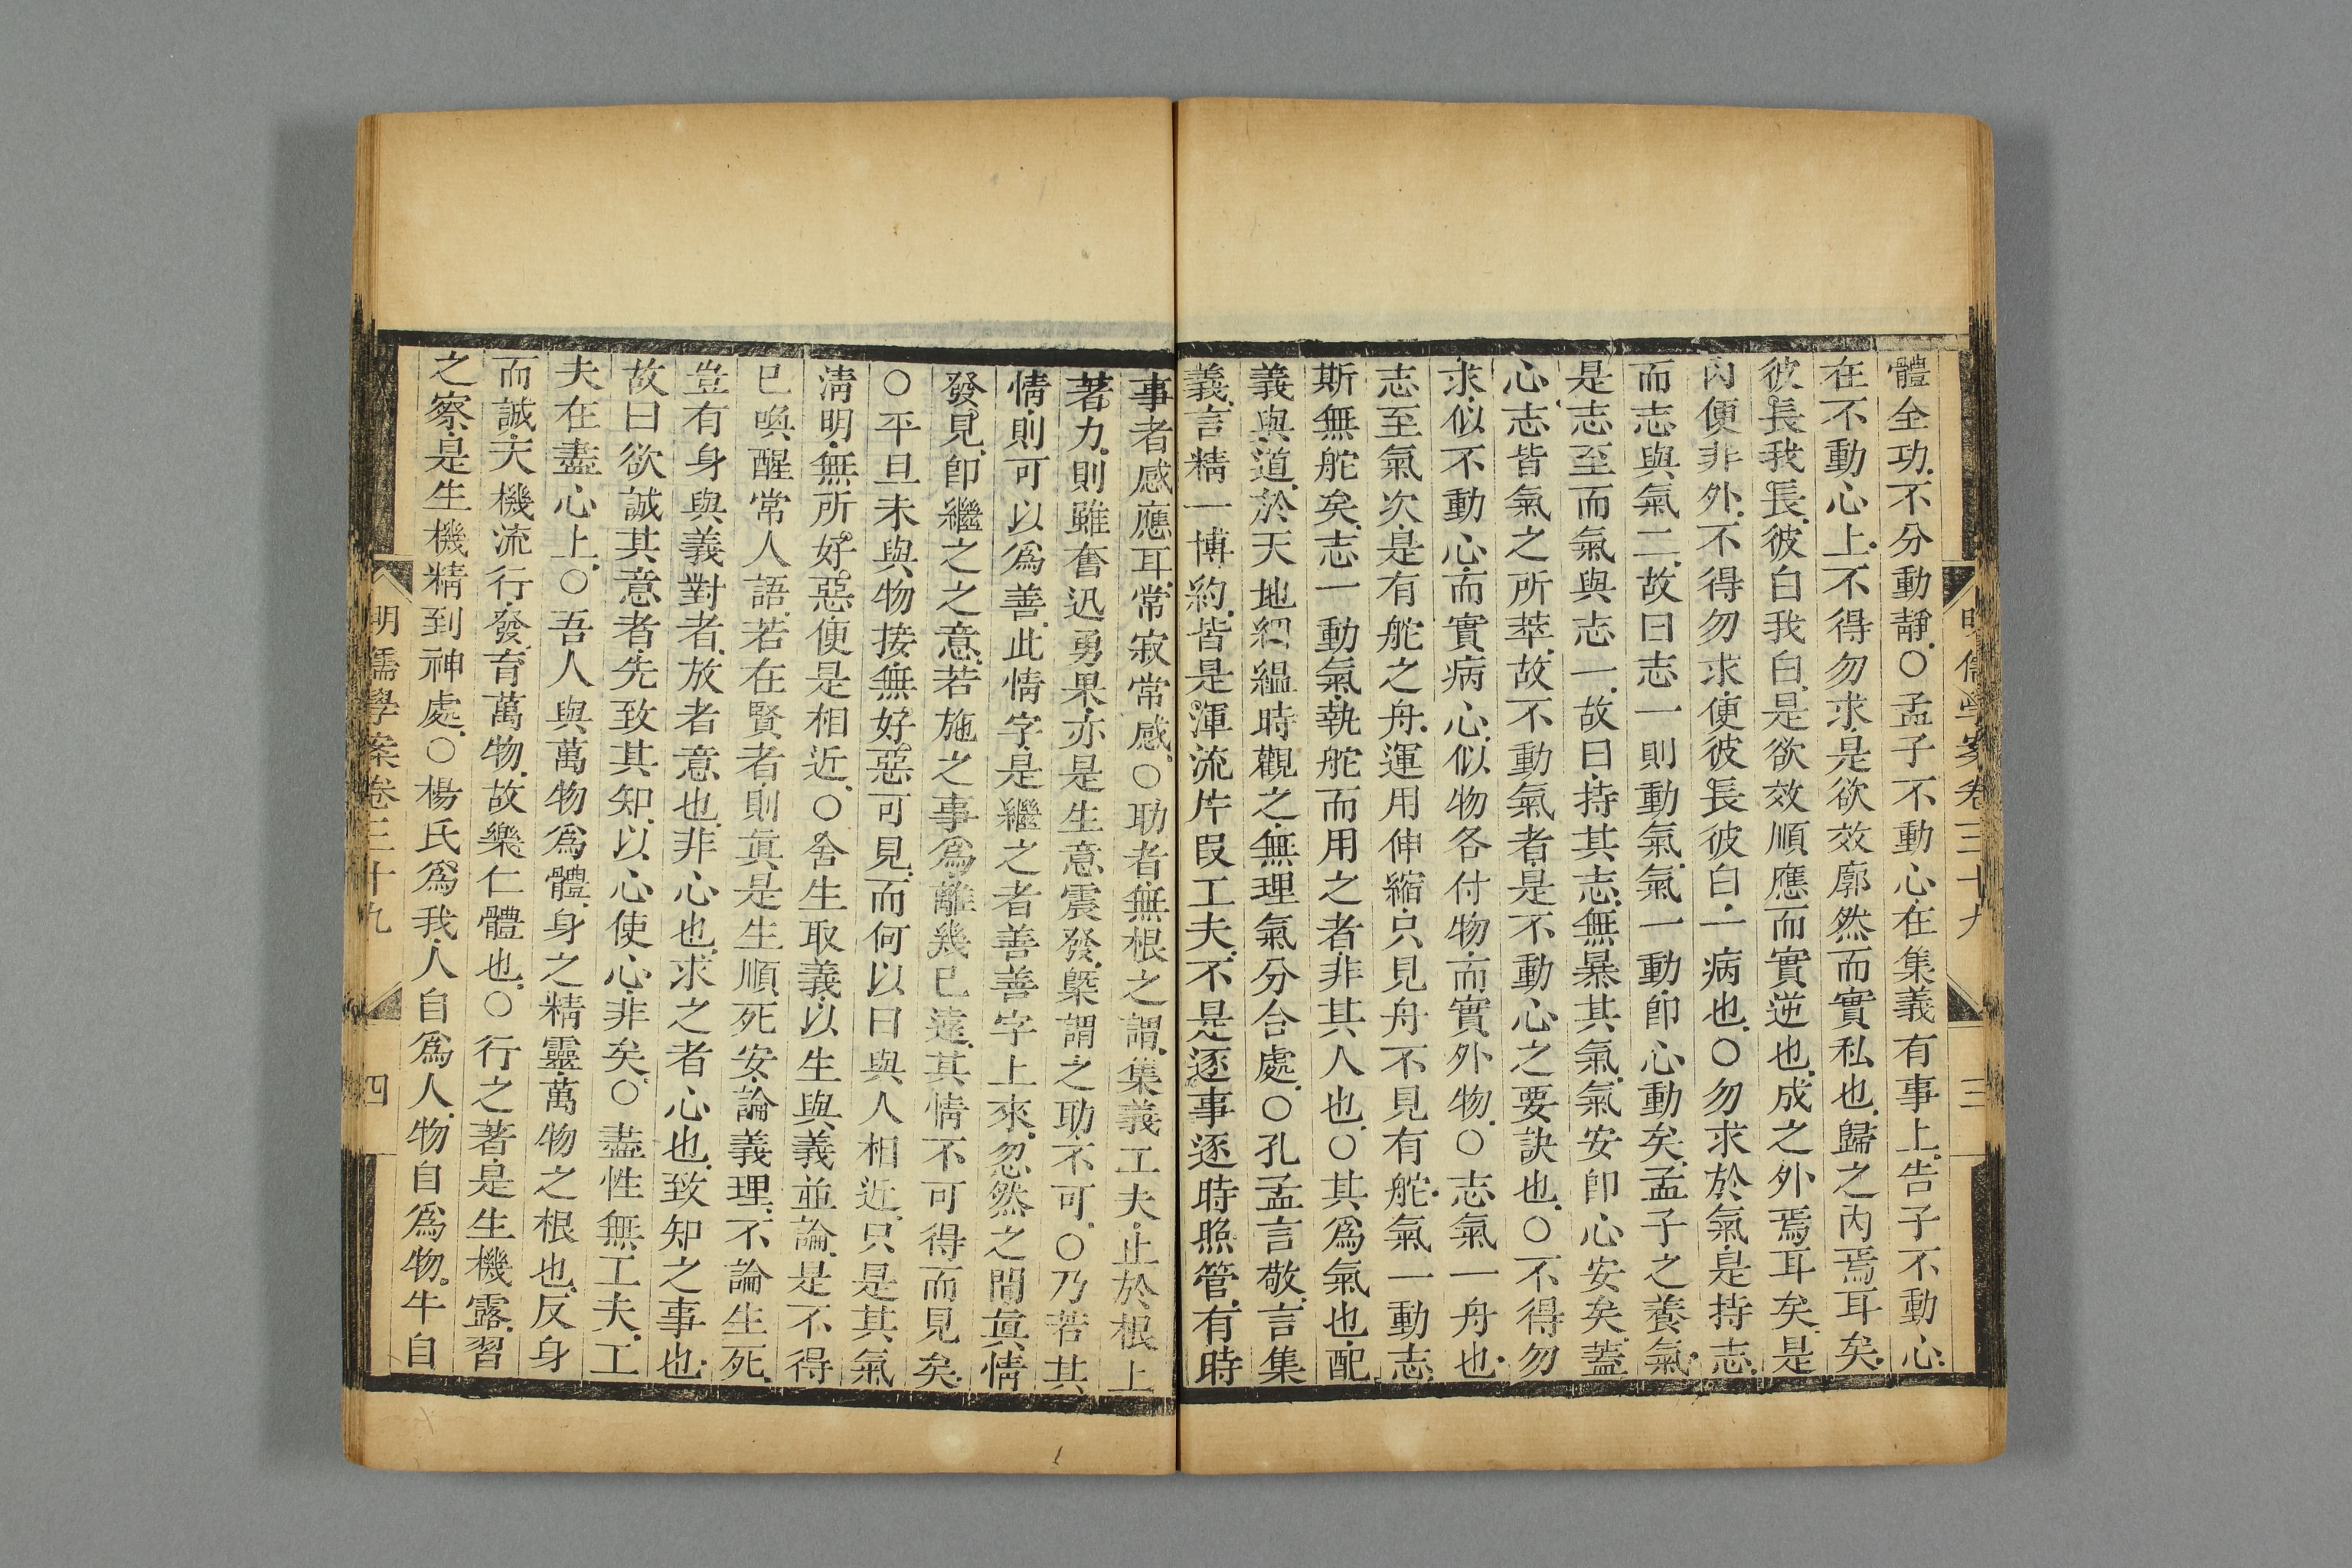 明儒學案卷三十九 三
體全功不分動靜○孟子不動心在集義有事上告子不動心
在不動心上不得勿求是欲效廓然而實私也歸之內焉耳矣
彼長我長彼白我白是欲效順應而實逆也成之外焉耳矣是
內便非外不得勿求便彼長彼白一病也○勿求於氣是持志
而志與氣二故曰志一則動氣氣一動卽心動矣孟子之養氣
是志至而氣與志一故曰持其志無暴其氣氣安卽心安矣蓋
心志皆氣之所萃故不動氣者是不動心之要訣也○不得勿
求似不動心而實病心似物各付物而實外物○志氣一舟也
志至氣次是有舵之舟運用伸縮只見舟不見有舵氣一動志
斯無舵矣志一動氣執舵而用之者非其人也○其爲氣也配
義與道於天地絪縕時觀之無理氣分合處○孔孟言敬言集
義言精一博約皆是渾流片段工夫不是逐事逐時照管有時
事者感應耳常寂常感○助者無根之謂集義工夫止於根上
著力則雖奮迅勇果亦是生意震發槩謂之助不可○乃若其
情則可以爲善此情字是繼之者善善字上來忽然之閒眞情
發見卽繼之之意若施之事爲離幾已遠其情不可得而見矣
○平旦未與物接無好惡可見而何以曰與人相近只是其氣
淸明無所好惡便是相近○舍生取義以生與義並論是不得
已喚醒常人語若在賢者則眞是生順死安論義理不論生死
豈有身與義對者放者意也非心也求之者心也致知之事也
故曰欲誠其意者先致其知以心使心非矣○盡性無工夫工
夫在盡心上○吾人與萬物爲體身之精靈萬物之根也反身
而誠天機流行發育萬物故樂仁體也○行之著是生機露習
之察是生機精到神處○楊氏爲我人自爲人物自爲物牛自
明儒學案卷三十九 四